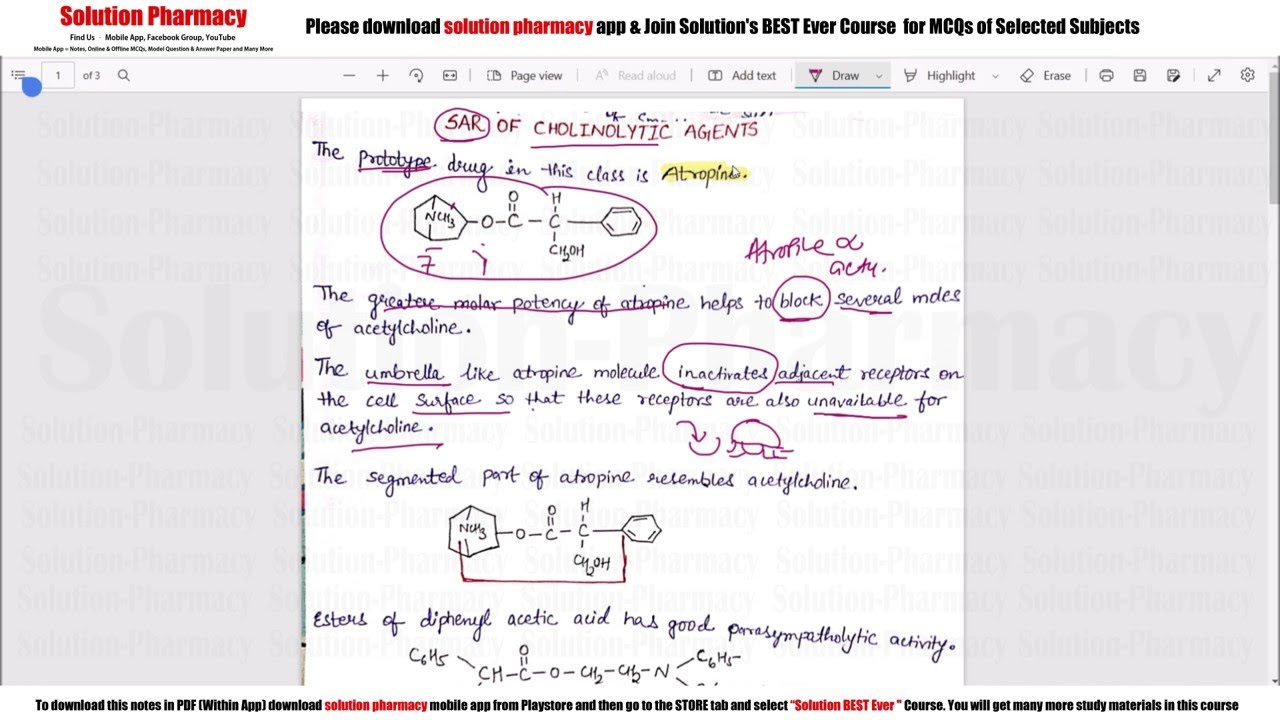 Solution Pharmacy
Find Us - Mobile App, Facebook Group, YouTube
Mobile App = Notes, Online & Offline MCQs, Model Question & Answer Paper and Many More
Please download solution pharmacy app & Join Solution's BEST Ever Course for MCQs of Selected Subjects
1 of 3
Page view
Read aloud
Add text
Draw
Highlight
Erase
SAR OF CHOLINOLYTIC AGENTS
The prototype drug in this class is Atropine.
O H
NCH3 - O - C - C -
CH2OH
The greatere molar potency of atropine helps to block several mdes
of acetylcholine.
The umbrella like atropine molecule inactivates adjacent receptors on
the cell surface so that these receptors are also unavailable for
acetylcholine.
The segmented part of atropine resembles acetylcholine.
O H
NCH3 - O - C - C -
CH2OH
Esters of diphenyl acetic acid has good parasympatholytic activity.
C6H5 O C6H5
CH-C-O-CH2-CH2-N
Solution-Pharmacy
To download this notes in PDF (Within App) download solution pharmacy mobile app from Playstore and then go to the STORE tab and select "Solution BEST Ever " Course. You will get many more study materials in this course